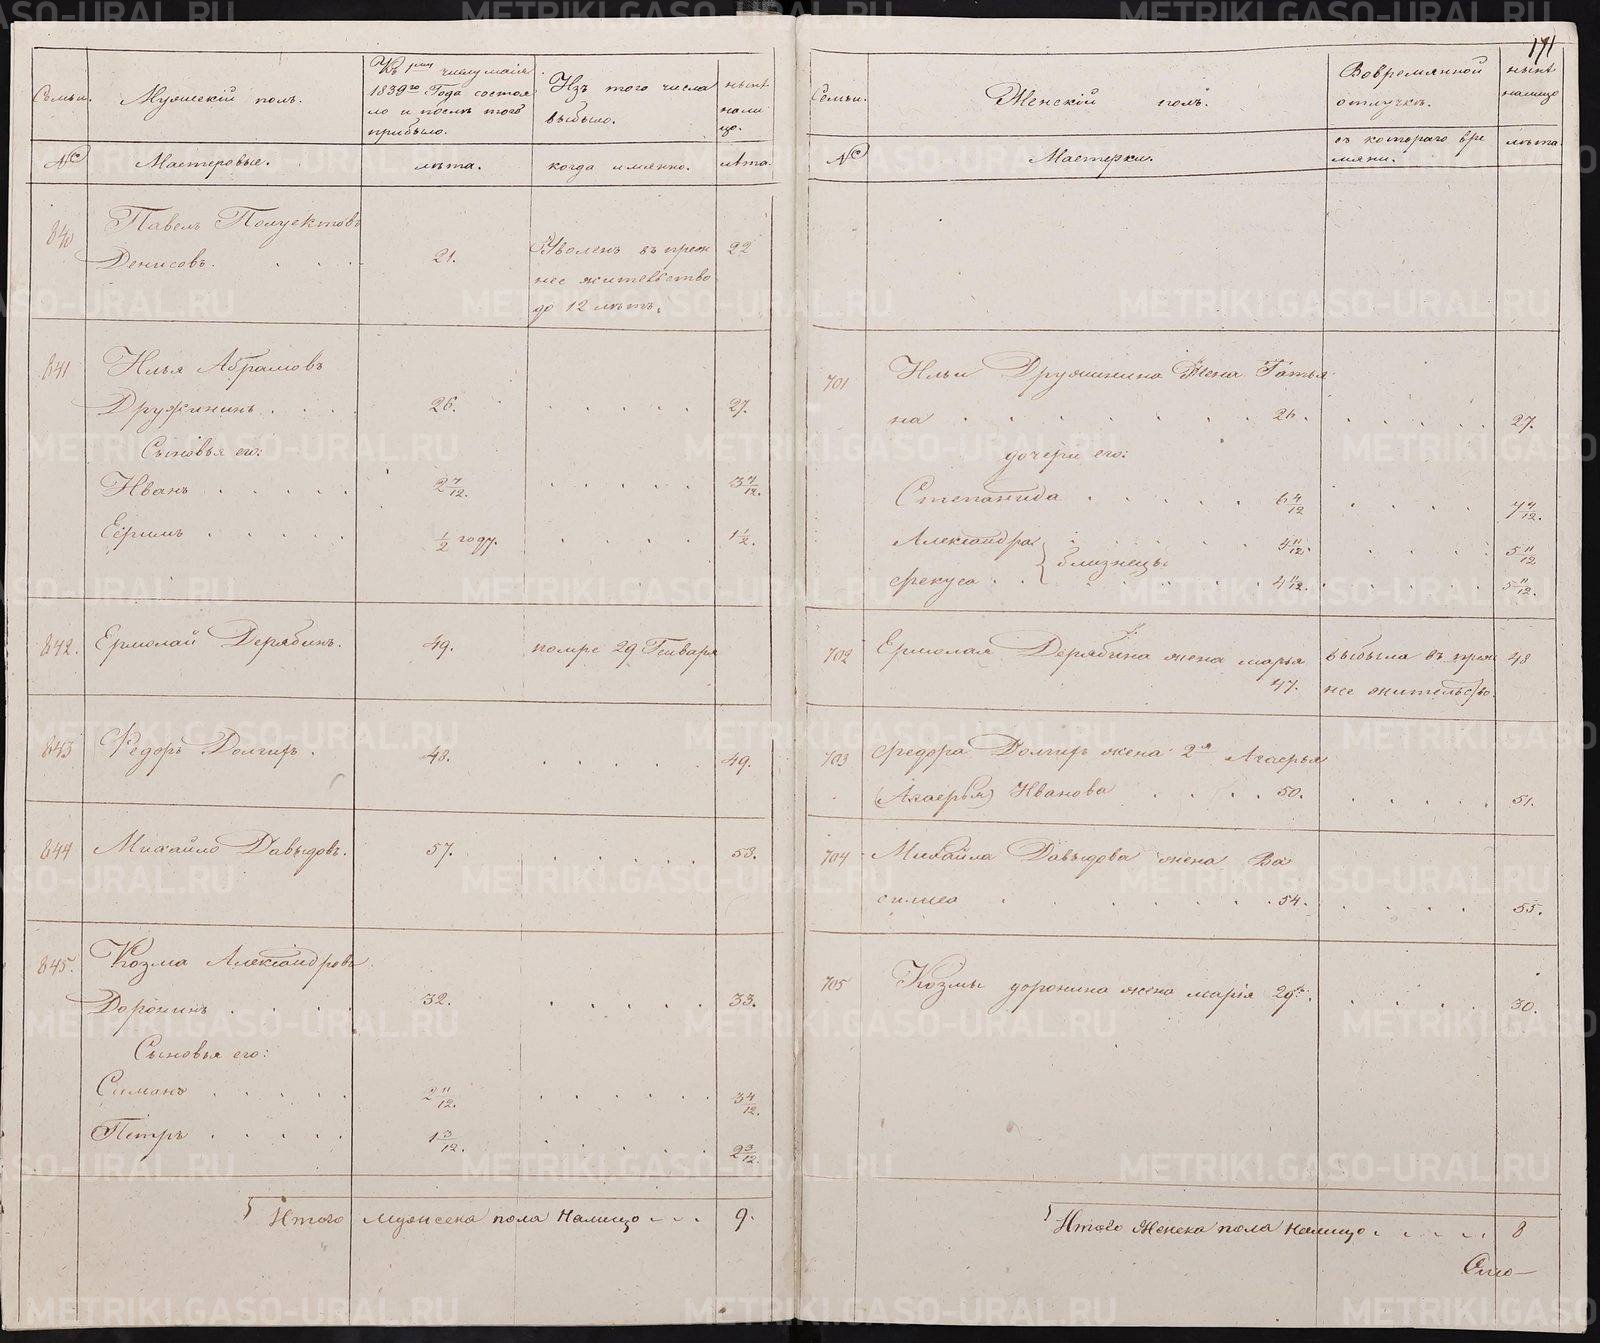 171
Семьи.
Мужескій полъ.
Къ 1му числу маія
1839го Года состоя
ло и послѣ того
прибыло.
Изъ того числа
выбыло.
нынѣ
нали
цо.
№
Мастеровые.
лѣта.
когда имянно.
лѣта.
840
Павелъ Полуектовъ
Денисовъ.
21.
Уволенъ въ преж
нее жительство
до 12 лѣтъ.
22
841
Илья Абрамовъ
Дружининъ
26.
27.
Сыновья его:
Иванъ
2 7/12.
3 7/12.
Ефимъ
1/2 году.
1 1/2.
842.
Ермолай Дерябинъ.
49.
помре 29 Генваря
843
Федоръ Долгихъ.
48.
49.
844
Михайло Давыдовъ.
57.
58.
845.
Козма Александровъ
Доронинъ
32.
33.
Сыновья его:
Симанъ
2 11/12.
3 4/12.
Петръ
1 3/12.
2 3/12.
Итого мужеска пола налицо
9.
Семьи.
Женскій полъ.
Вовремянной
отлучкѣ.
нынѣ
налицо
№
Мастерки.
съ котораго вре
мяни.
лѣта
701
Ильи Дружинина Жена Татья
на
26.
27.
дочери его:
Степанида
6 4/12
7 4/12.
Александра
4 11/12.
5 11/12
близнецы
Фекуса
4 11/12.
5 11/12.
702
Ермолая Дерябина жена марья
47.
выбыла въ преж
нее жительство.
48
703
Федора Долгихъ жена 2я Агаѳья
(Агаѳья) Иванова
50.
51.
704
Михайла Давыдова жена Ва
силиса
54.
55.
705
Козмы доронина жена марія 29ть.
30.
Итого Женска пола налицо
8